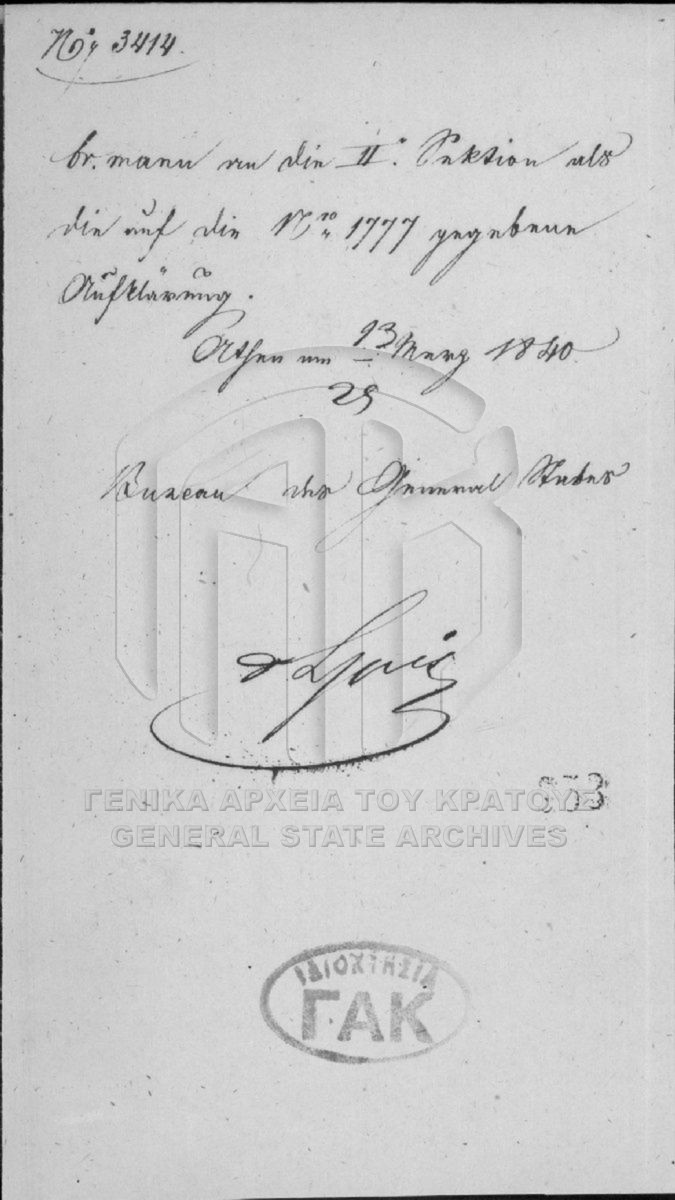 No 3414.
br. manu an die II. Sektion als
die auf die Nro 1777 gegebene
Aufklärung.
Athen am 13 Merz 1840
25
Bureau des General Stabes
ΓΕΝΙΚΑ ΑΡΧΕΙΑ ΤΟΥ ΚΡΑΤΟΥΣ
GENERAL STATE ARCHIVES
ΙΔΙΟΚΤΗΣΙΑ
ΓΑΚ